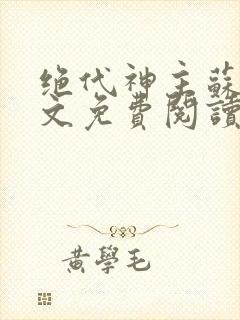 绝代神主蘇
文免費閱讀
黃學毛